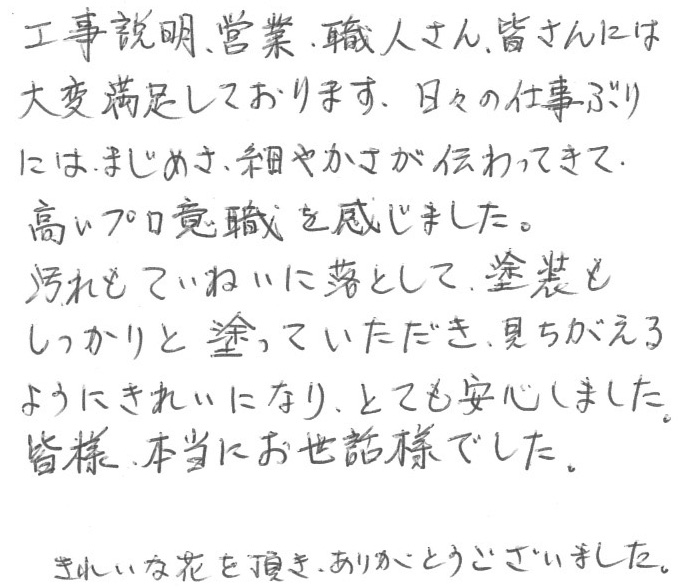 工事説明、営業、職人さん、皆さんには
大変満足しております。日々の仕事ぶり
には、まじめさ、細やかさが伝わってきて、
高いプロ意職を感じました。
汚れもていねいに落として、塗装も
しっかりと塗っていただき、見ちがえる
ようにきれいになり、とても安心しました。
皆様、本当にお世話様でした。
きれいな花を頂き、ありがとうございました。